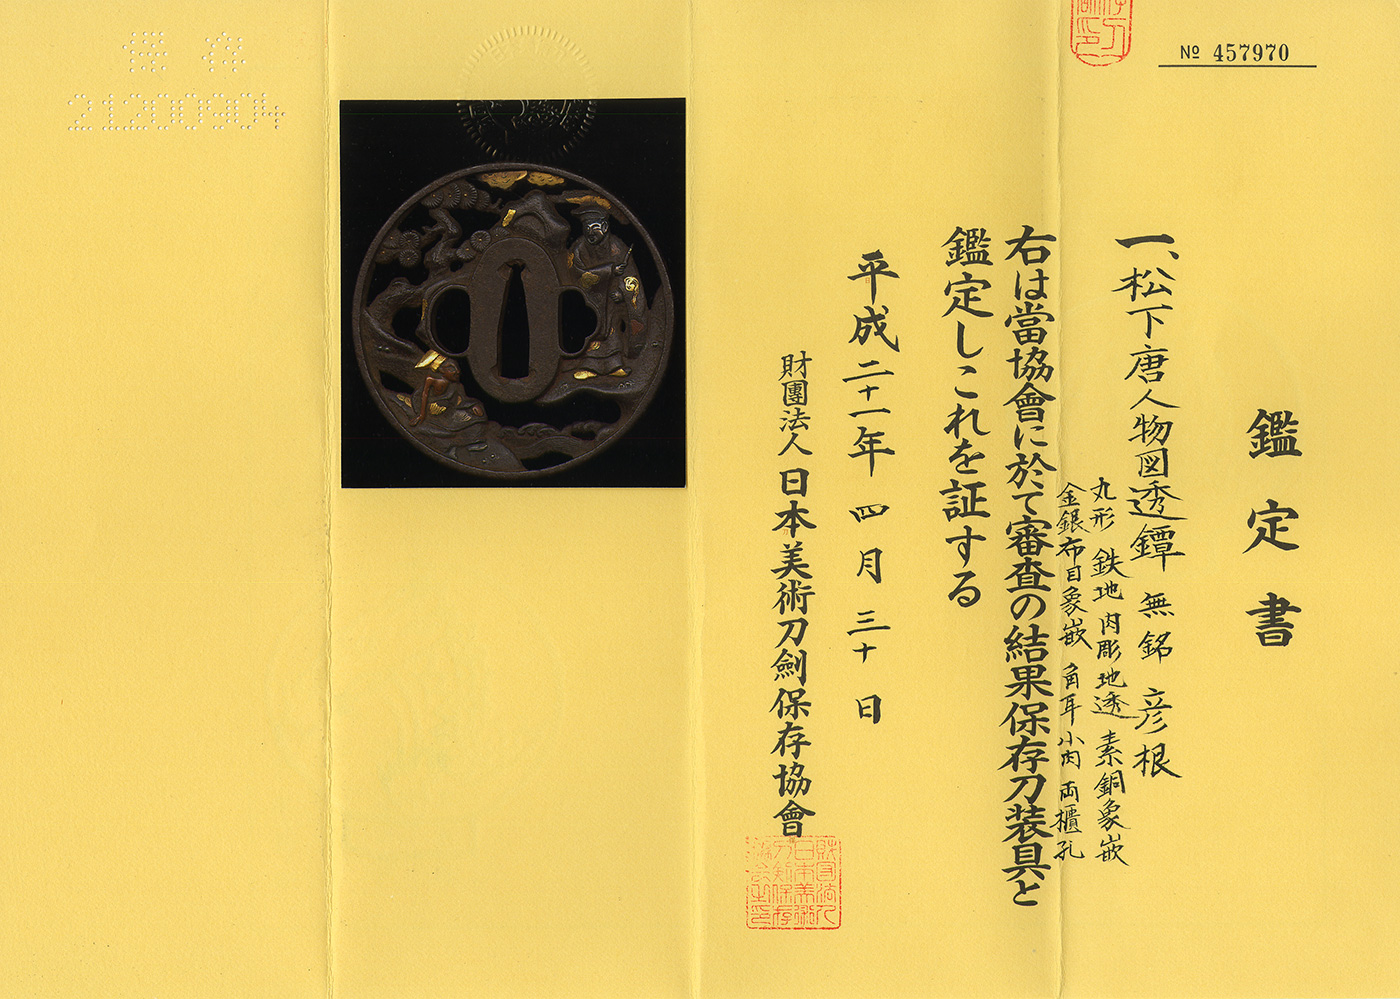 № 457970
鑑定書
一、松下唐人物図透鐔 無銘 彦根
丸形 鉄地 肉彫地透 素銅象嵌
金銀布目象嵌 角耳小肉 両櫃孔
右は當協會に於て審査の結果保存刀装具と
鑑定しこれを証する
平成二十一年 四月 三十日
財團法人 日本美術刀劍保存協會
保存
21200904